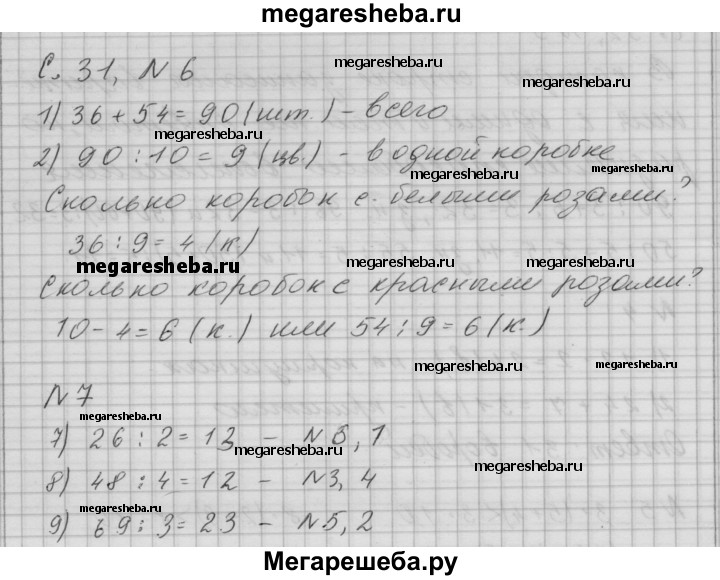 megaresheba.ru
С. 31, N 6
megaresheba.ru
megaresheba.ru
1) 36 + 54 = 90 (шт.) - всего
megaresheba.ru
2) 90 : 10 = 9 (цв.) - в одной коробке
megaresheba.ru
megaresheba.ru
Сколько коробок с белыми розами?
megaresheba.ru
36 : 9 = 4 (к.)
megaresheba.ru
megaresheba.ru
Сколько коробок с красными розами?
10 - 4 = 6 (к.) или 54 : 9 = 6 (к.)
megaresheba.ru
megaresheba.ru
N 7
megaresheba.ru
7) 26 : 2 = 13 - N 6, 1
megaresheba.ru
megaresheba.ru
8) 48 : 4 = 12 - N3, 4
megaresheba.ru
9) 69 : 3 = 23 - N5, 2
megaresheba.ru
Мегарешеба.ру